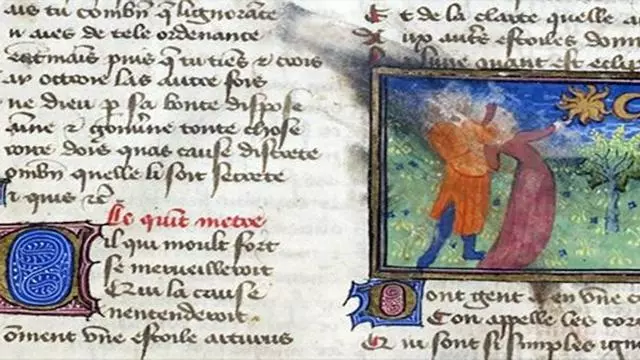 ais tu combn̄ q̃ lignorance
n aies de tele ordenance
puis q̃ tu ties & crois
ay octroie las autre fois
ue dieu p sa bonte dispose
ainne & gouuerne toute chose
toute dois quas cause discrete
ombn̄ quelle li soit secrete
t quis etc̄
Le quint metre
il qui moult fort
se merueilleroit
Qui la cause
nentenderoit
oment vne estoile arturus
Et de la clarte quelle a
Aux autres estoiles dom
la lune quant est eclip
Dont gent a en vne c
Con appelle les cor
Qui sont si simples igno